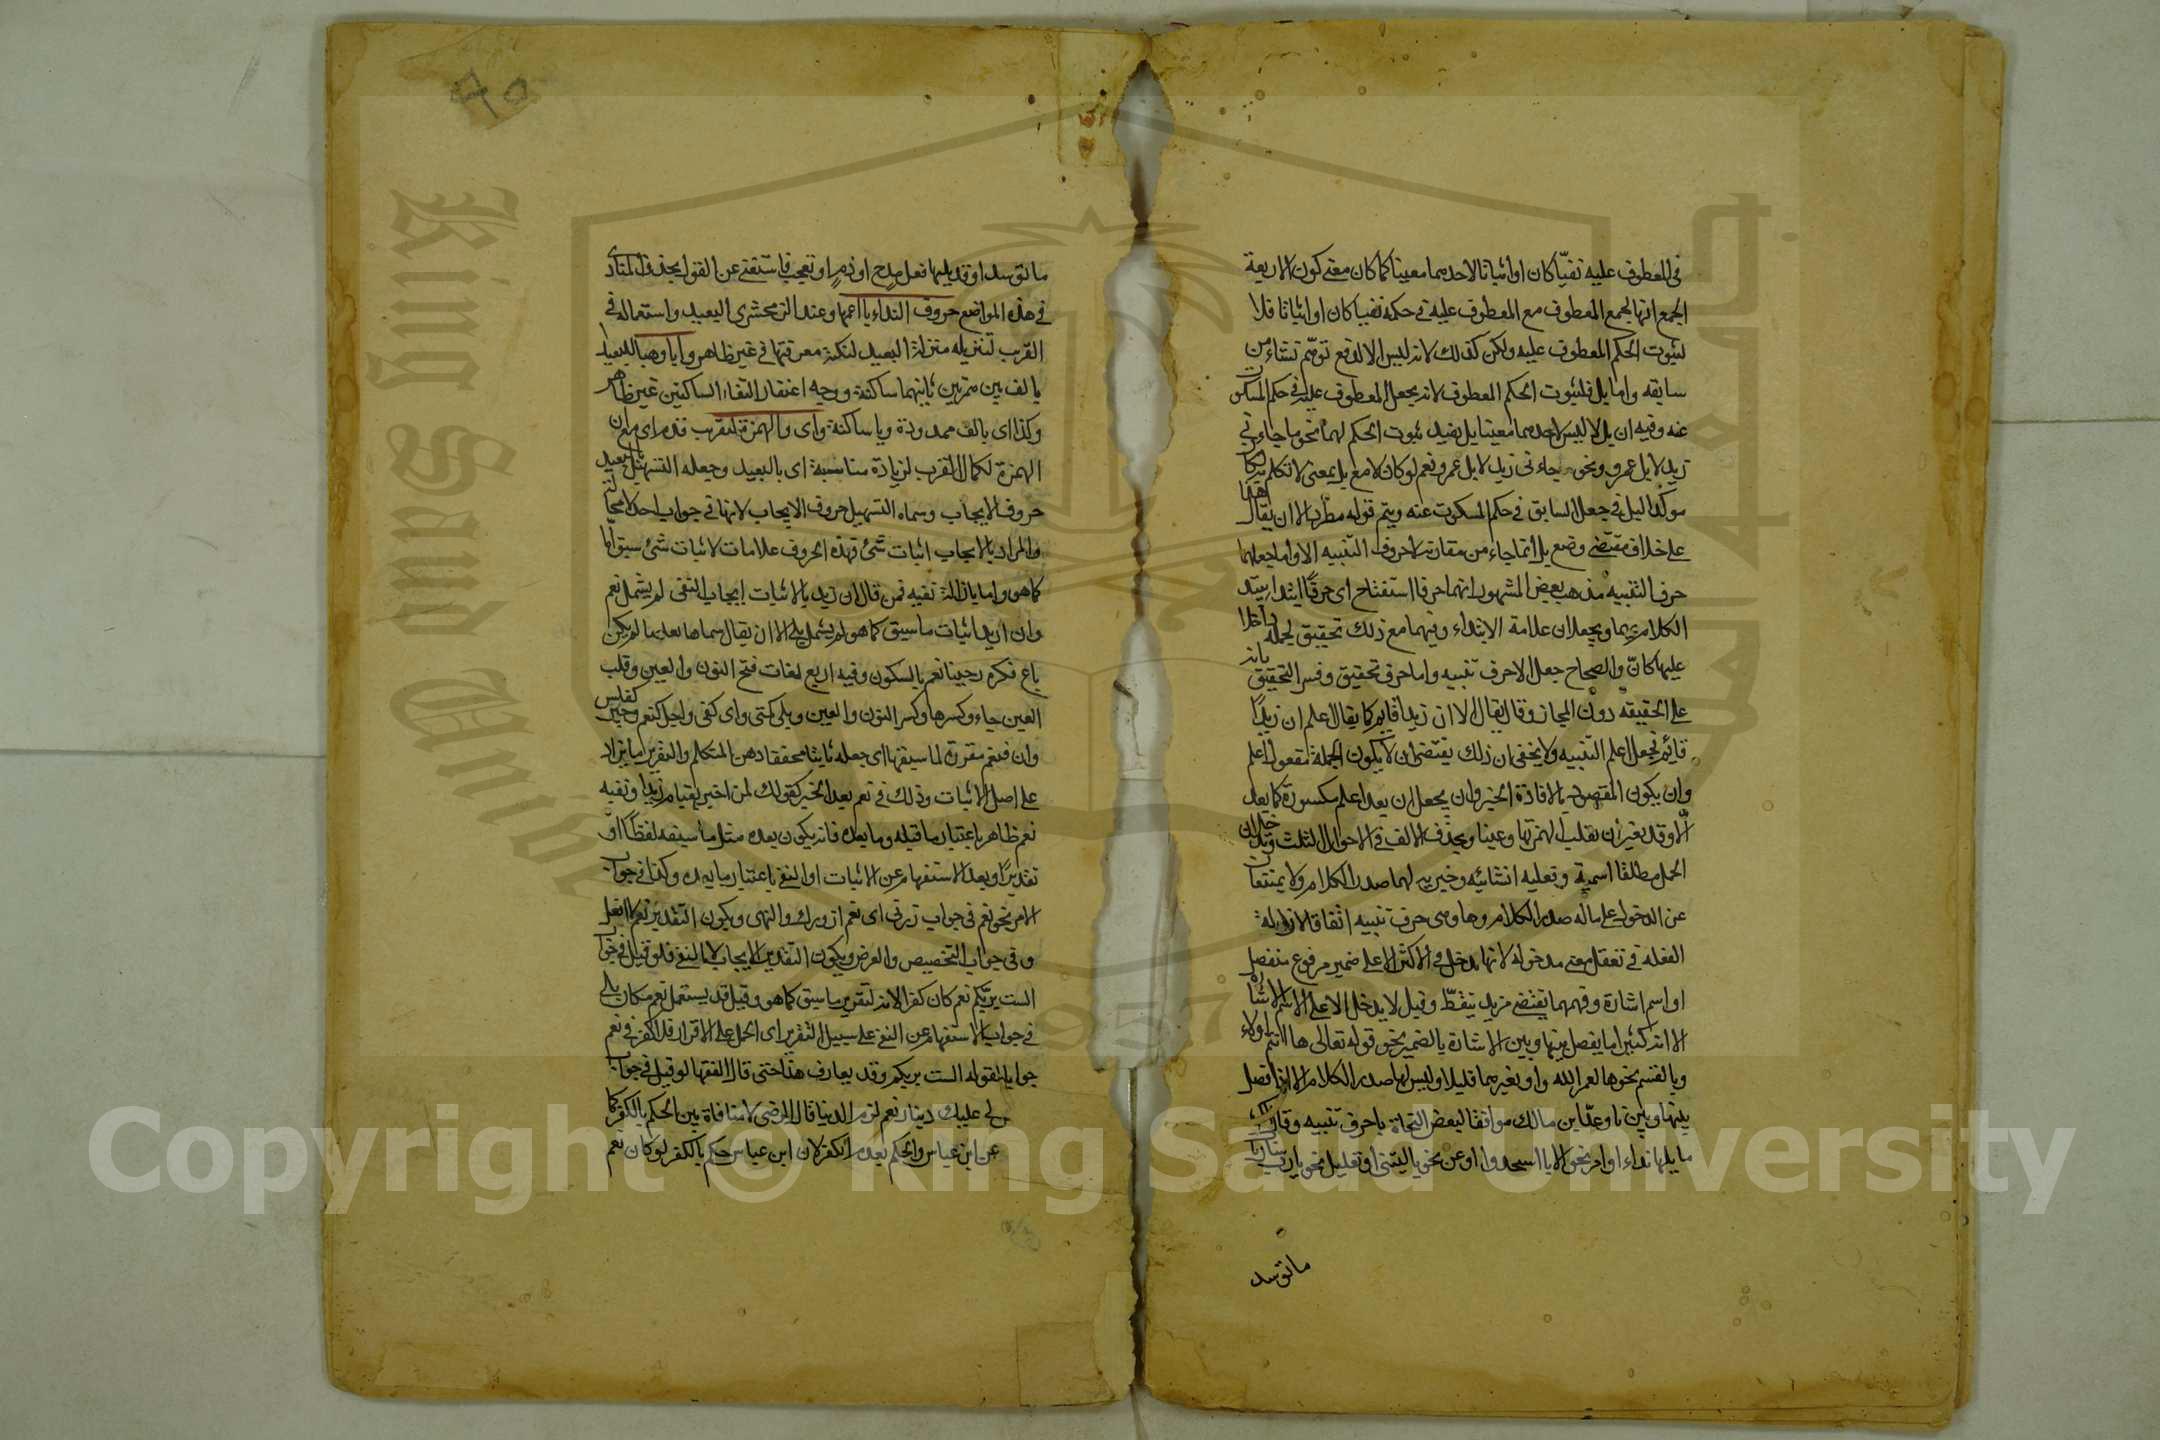 في المعطوف عليه نفيا كان او اثباتا لاحدهما معينا كما كان معنى كون الاربعة
الجمع انها لجمع المعطوف مع المعطوف عليه في حكمه نفيا كان او اثباتا فلا
لثبوت الحكم المعطوف عليه ولكن كذلك لانه ليس الا لدفع توهم تنشاء من
سابقه واما بل فلثبوت الحكم المعطوف لانه يجعل المعطوف عليه في حكم المسكوت
عنه وفيه ان بل لا ليس لاحدهما معينا بل يفيد ثبوت الحكم لهما نحو ما جاءني
زيد لا بل عمرو ونحو جاءني زيد لا بل عمرو نعم لو كان لا مع بل بمعنى لا تكلم
موكدا لبل في جعل السابق في حكم المسكوت عنه ويتم قوله مطردا الا ان يقال هذا
على خلاف مقتضى وضع بل انما جاء من مقارنة لا حروف التنبيه الا واما جعلهما
حرف التنبيه مذهب بعض المشهور انهما حرفا استفتاح اى حرفا ابتداء يبتدء
الكلام بهما ويجعلان علامة الابتداء وفيهما مع ذلك تحقيق لجملة دخلا
عليها كان والصحاح جعل الا حرف تنبيه واما حرف تحقيق وفسر التحقيق بانه
على الحقيقة دون المجاز وقال يقال الا ان زيدا قايم كما يقال اعلم ان زيدا
قايم تجعل اعلم التنبيه ولا يخفى ان ذلك يقتضى ان لا يكون الجملة مفعول اعلم
وان يكون المقصود بالافادة الخبر وان يجعل ان بعد اعلم مكسورة كما بعد
الا وقد يغيران بقلب الهمزتها وعينا وبحذف الالف في الاحوال الثلث وتدخلان
الجمل مطلقا اسمية وفعلية انشائيه وخبريه لهما صدر الكلام ولا يمتنعان
عن الدخول على ماله صدر الكلام وها وهى حرف تنبيه اتفاقا لازالة
الغفلة في تعقل معنى مدخوله لانها تدخل في الاكثر الا على ضمير مرفوع منفصل
او اسم اشارة وفهمهما يقتضى مزيد تيقظ وقيل لا يدخل الا على الاسم الاشارة
الا انه كثيرا ما يفصل بينها وبين الاشارة بالضمير نحو قوله تعالى ها انتم اولاء
وبالقسم نحو ها لعمر الله واو بغيرهما قليلا وليس لها صدر الكلام الا اذا فصل
بينها وبين تا وعد ابن مالك موافقا لبعض النحاة يا حرف تنبيه وقال
ما يليها نداء او امر نحو الا يا اسجدوا او نحو يا ليتنى او تقليل نحو يا رب
ما توسد
ما توسد او قد يليها فعل مدح او ذم او تعجب فاستغنى عن القول بحذف المنادى
في هذه المواضع حروف النداء يا اعمها وعند الزمخشرى البعيد واستعماله في
القرب لتنزيله منزلة البعيد لنكتة معرفتها في غير ظاهر وايا وهيا للبعيد
بالف بين همزتين ثانيهما ساكنة ووجه اغتفار التقاء الساكنين غير ظاهر
وكذا اى بالف ممدودة وياء ساكنة واى والهمزة لقرب قدم اى مع ان
الهمزة لكمال القرب لزيادة مناسبة اى بالبعيد وجعله التسهيل لبعيد
حروف الايجاب وسماه التسهيل حروف الايجاب لانها في جواب
والمراد بالايجاب اثبات شئ فهذه الحروف علامات لاثبات شئ سبق اما
كما هو واما بازالة نفيه فمن قال ان زيد بالاثبات ايجاب النفى لم يشمل نعم
وان اريد اثبات ما سبق كما هو لم يشمل بلى الا ان يقال
العين حاء وكسرها وكسر النون والعين وبلى كمتى واى كفى واجل كنعم وجير
وان فنعم مقررة لما سبقها اى جعله ثابتا محققا دهن المتكلم والتقرير
على اصل الاثبات وذلك في نعم بعد الخبر كقولك لمن اخبر بقيام زيد او نفيه
نعم ظاهر باعتبار ما قبله وما بعده فانه يكون بعده مثل ما سبقه لفظا او
تقديرا وبعد الاستفهام عن الاثبات او النفى باعتبار ما بعده وكذا في جواب
الامر نحو نعم في جواب زرنى اى نعم ازورك والنهى ويكون التقدير نعم لا افعل
وفي جواب التخصيص والعرض ويكون التقدير الايجاب لا بالنفى فلو قيل في جواب
الست بربكم نعم كان كفرا لانه لتقرير ما سبق كما هو وقيل قد يستعمل نعم مكان بلى
في جواب الاستفهام عن النفى على سبيل التقرير اى الحمل على الاقرار
جوابا لقوله الست بربكم وقد يعارف هذا حتى قال الفقها لو قيل في جواب
لى عليك دينار نعم لزم الدينا قال الرضى لا منافاة بين الحكم بالكفر كما
عن ابن عباس والحكم بعدم الكفر لان ابن عباس حكم بالكفر لو كان نعم
Copyright © King Saud University
King Saud University
1957